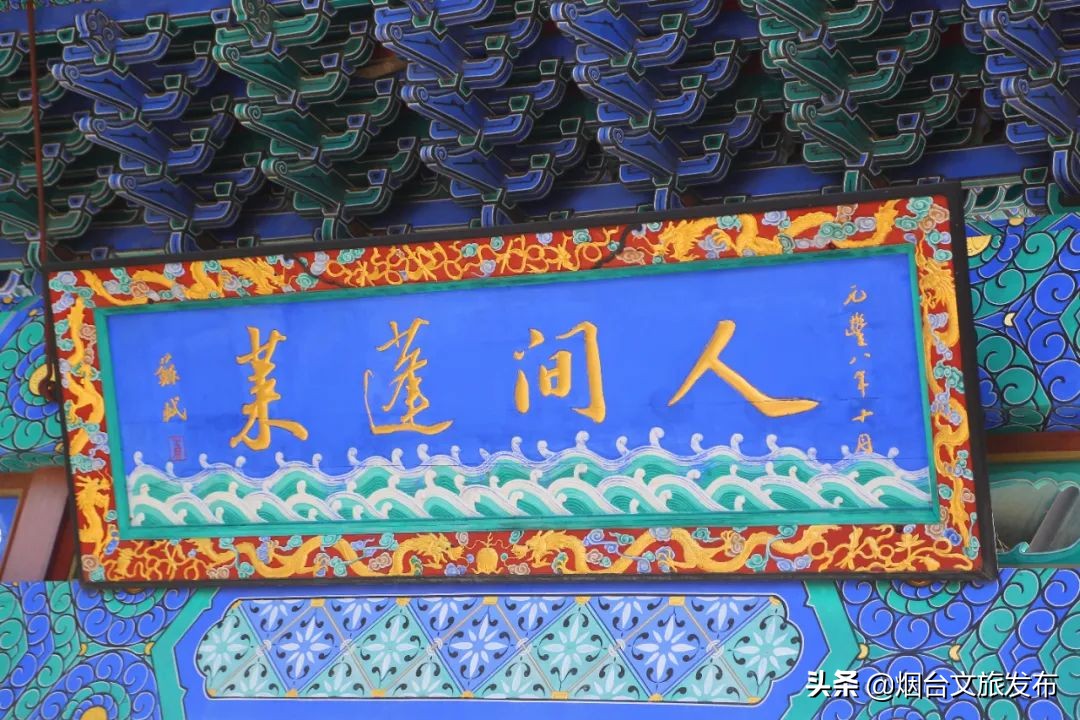 元豐八年十月
人间蓬莱
蘇軾
头条 @烟台文旅发布